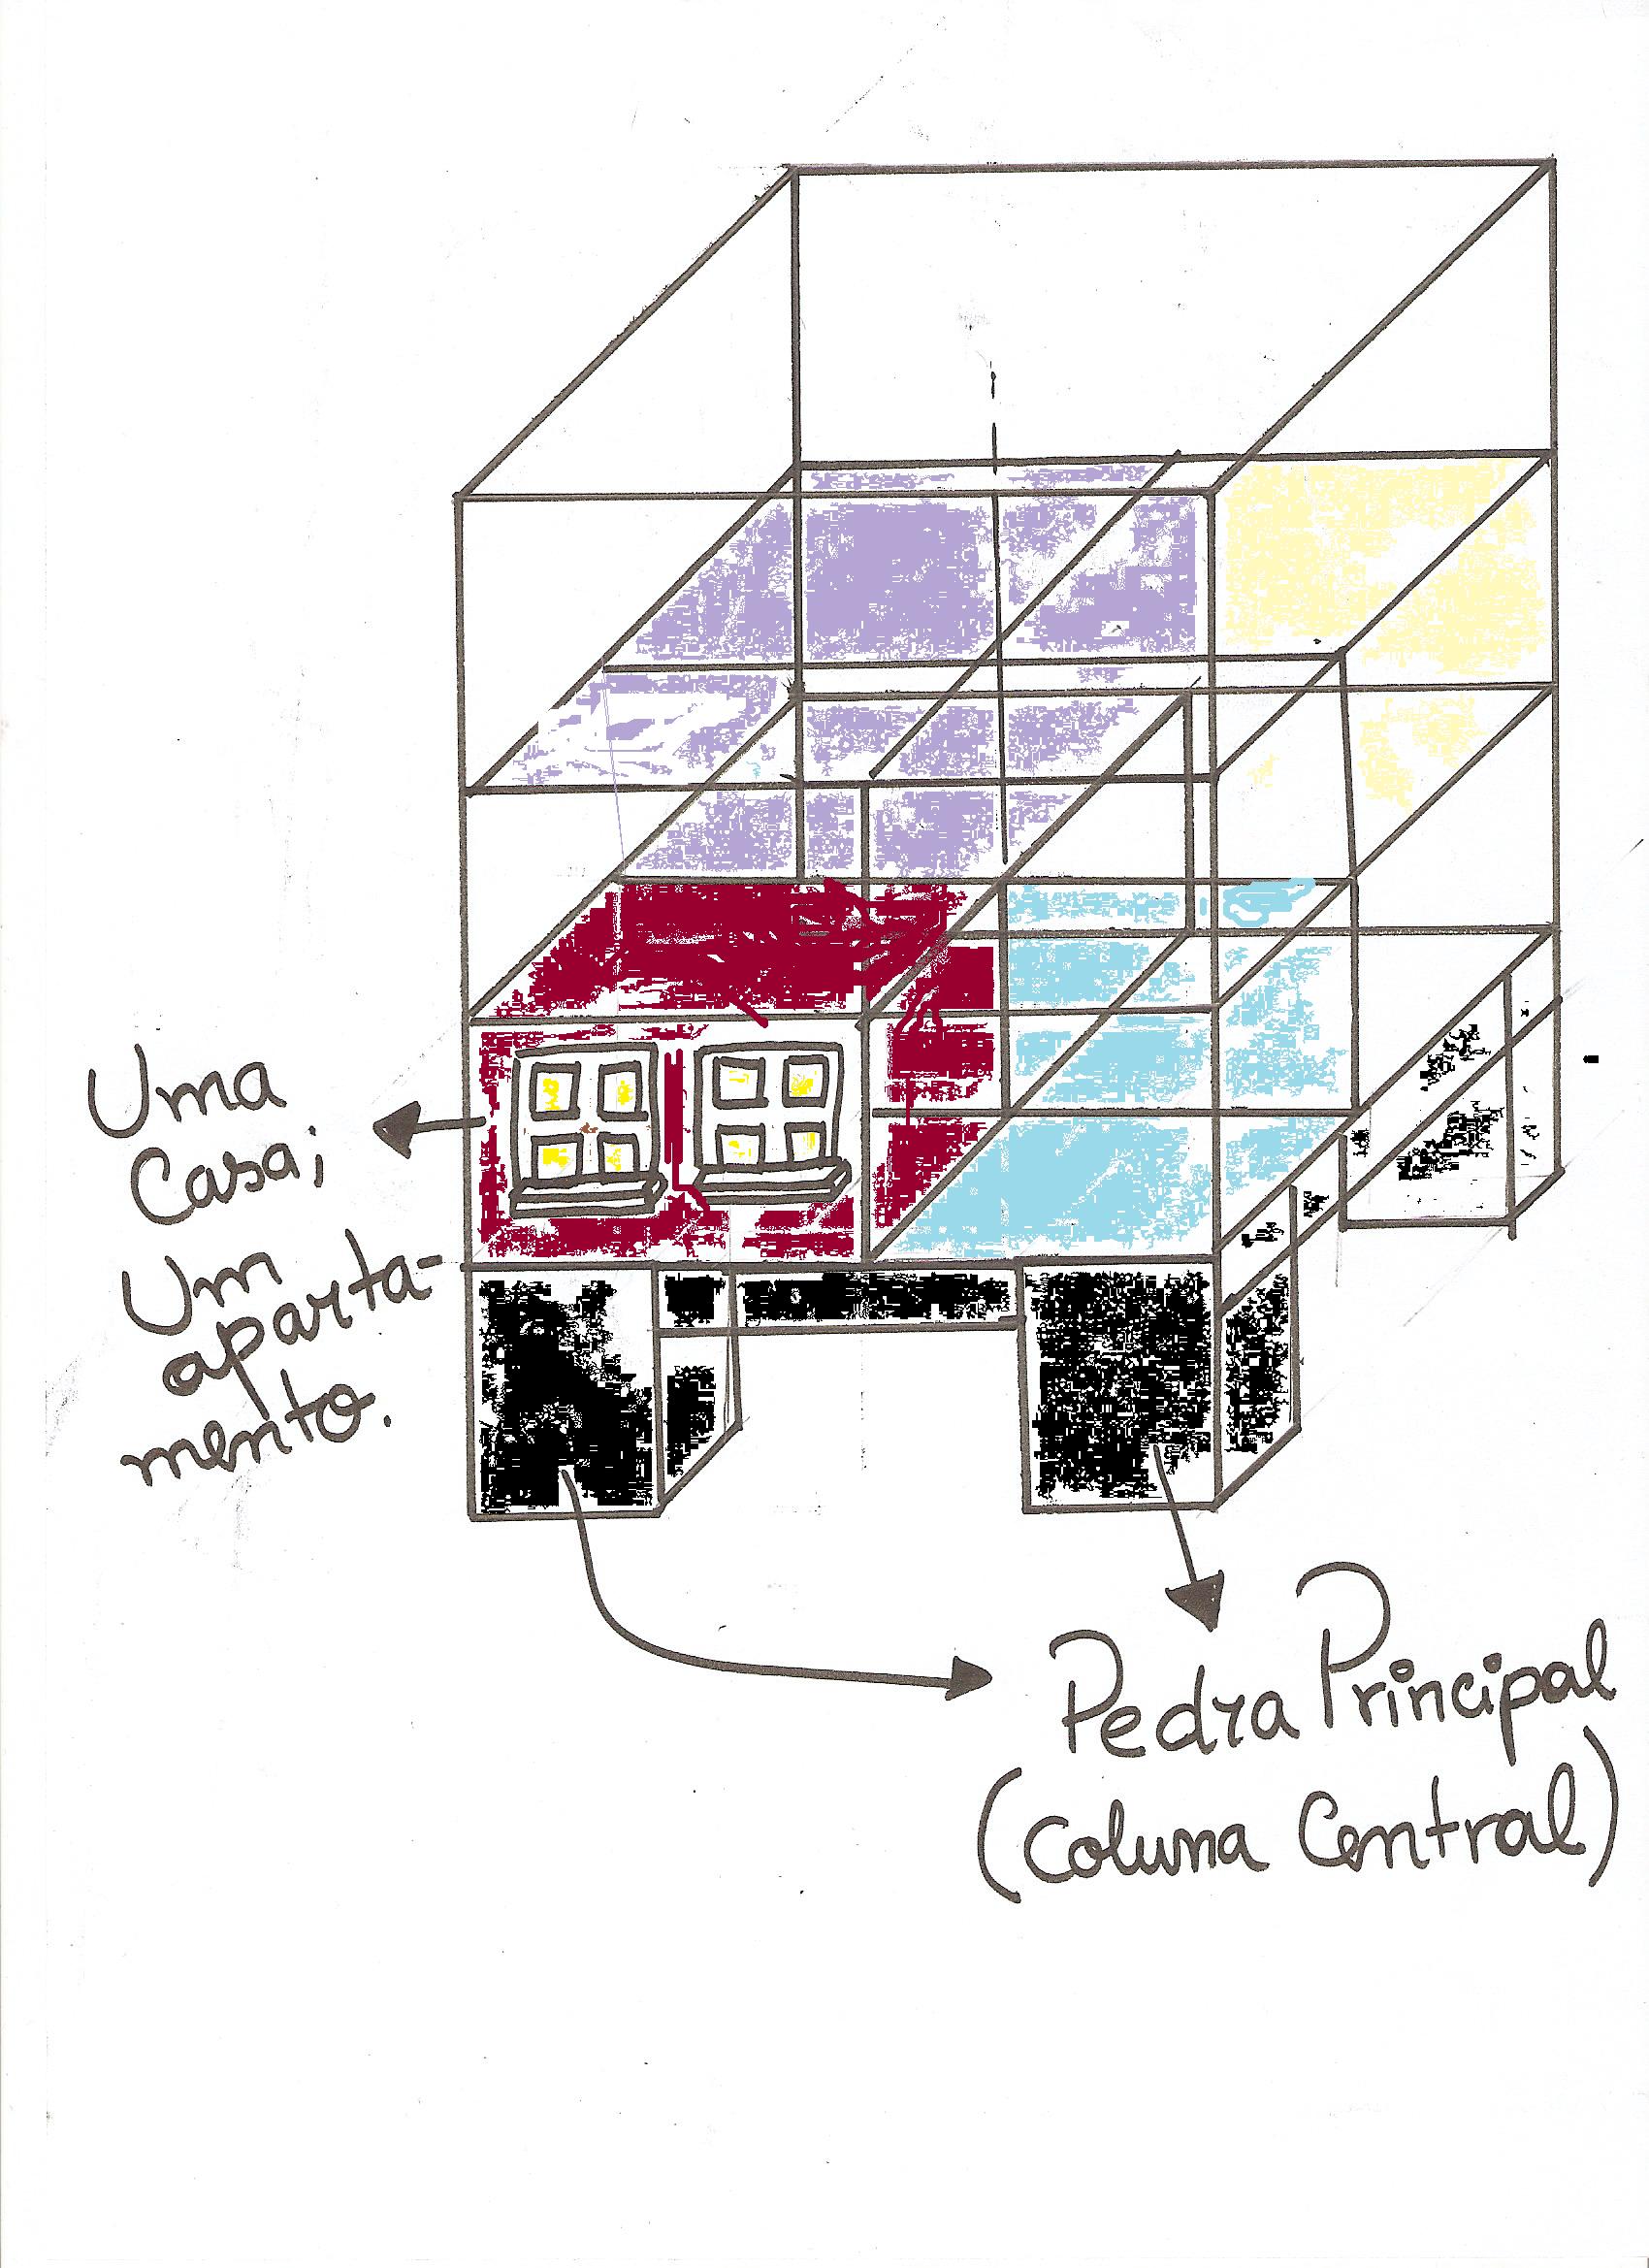 Uma
Casa;
Um
aparta-
mento.
Pedra Principal
(Coluna Central)